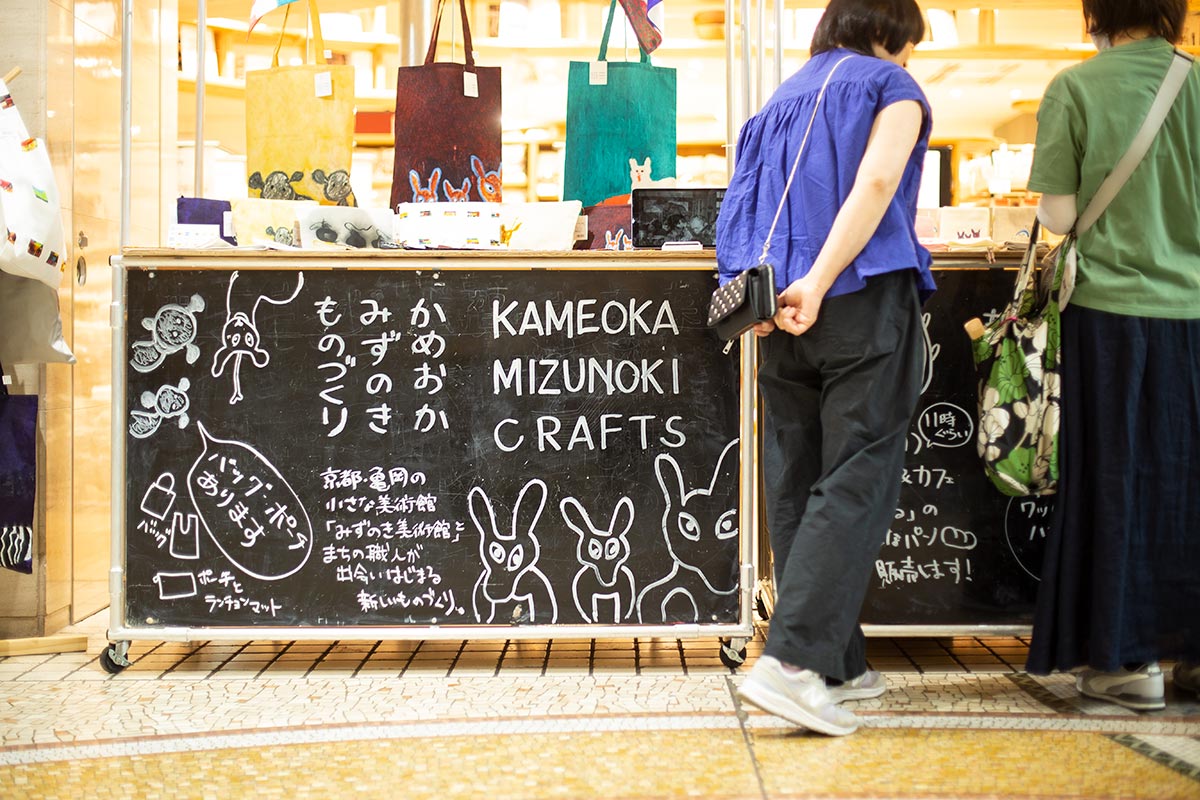 かめおか
みずのき
ものづくり
KAMEOKA
MIZUNOKI
CRAFTS
バッグ・ポーチ
あります
バッグ
ポーチと
ランチョンマット
京都・亀岡の
小さな美術館
「みずのき美術館」と
まちの職人が
出会いはじまる
新しいものづくり。
11時
ぐらい
&カフェ
」の
パン
販売します!